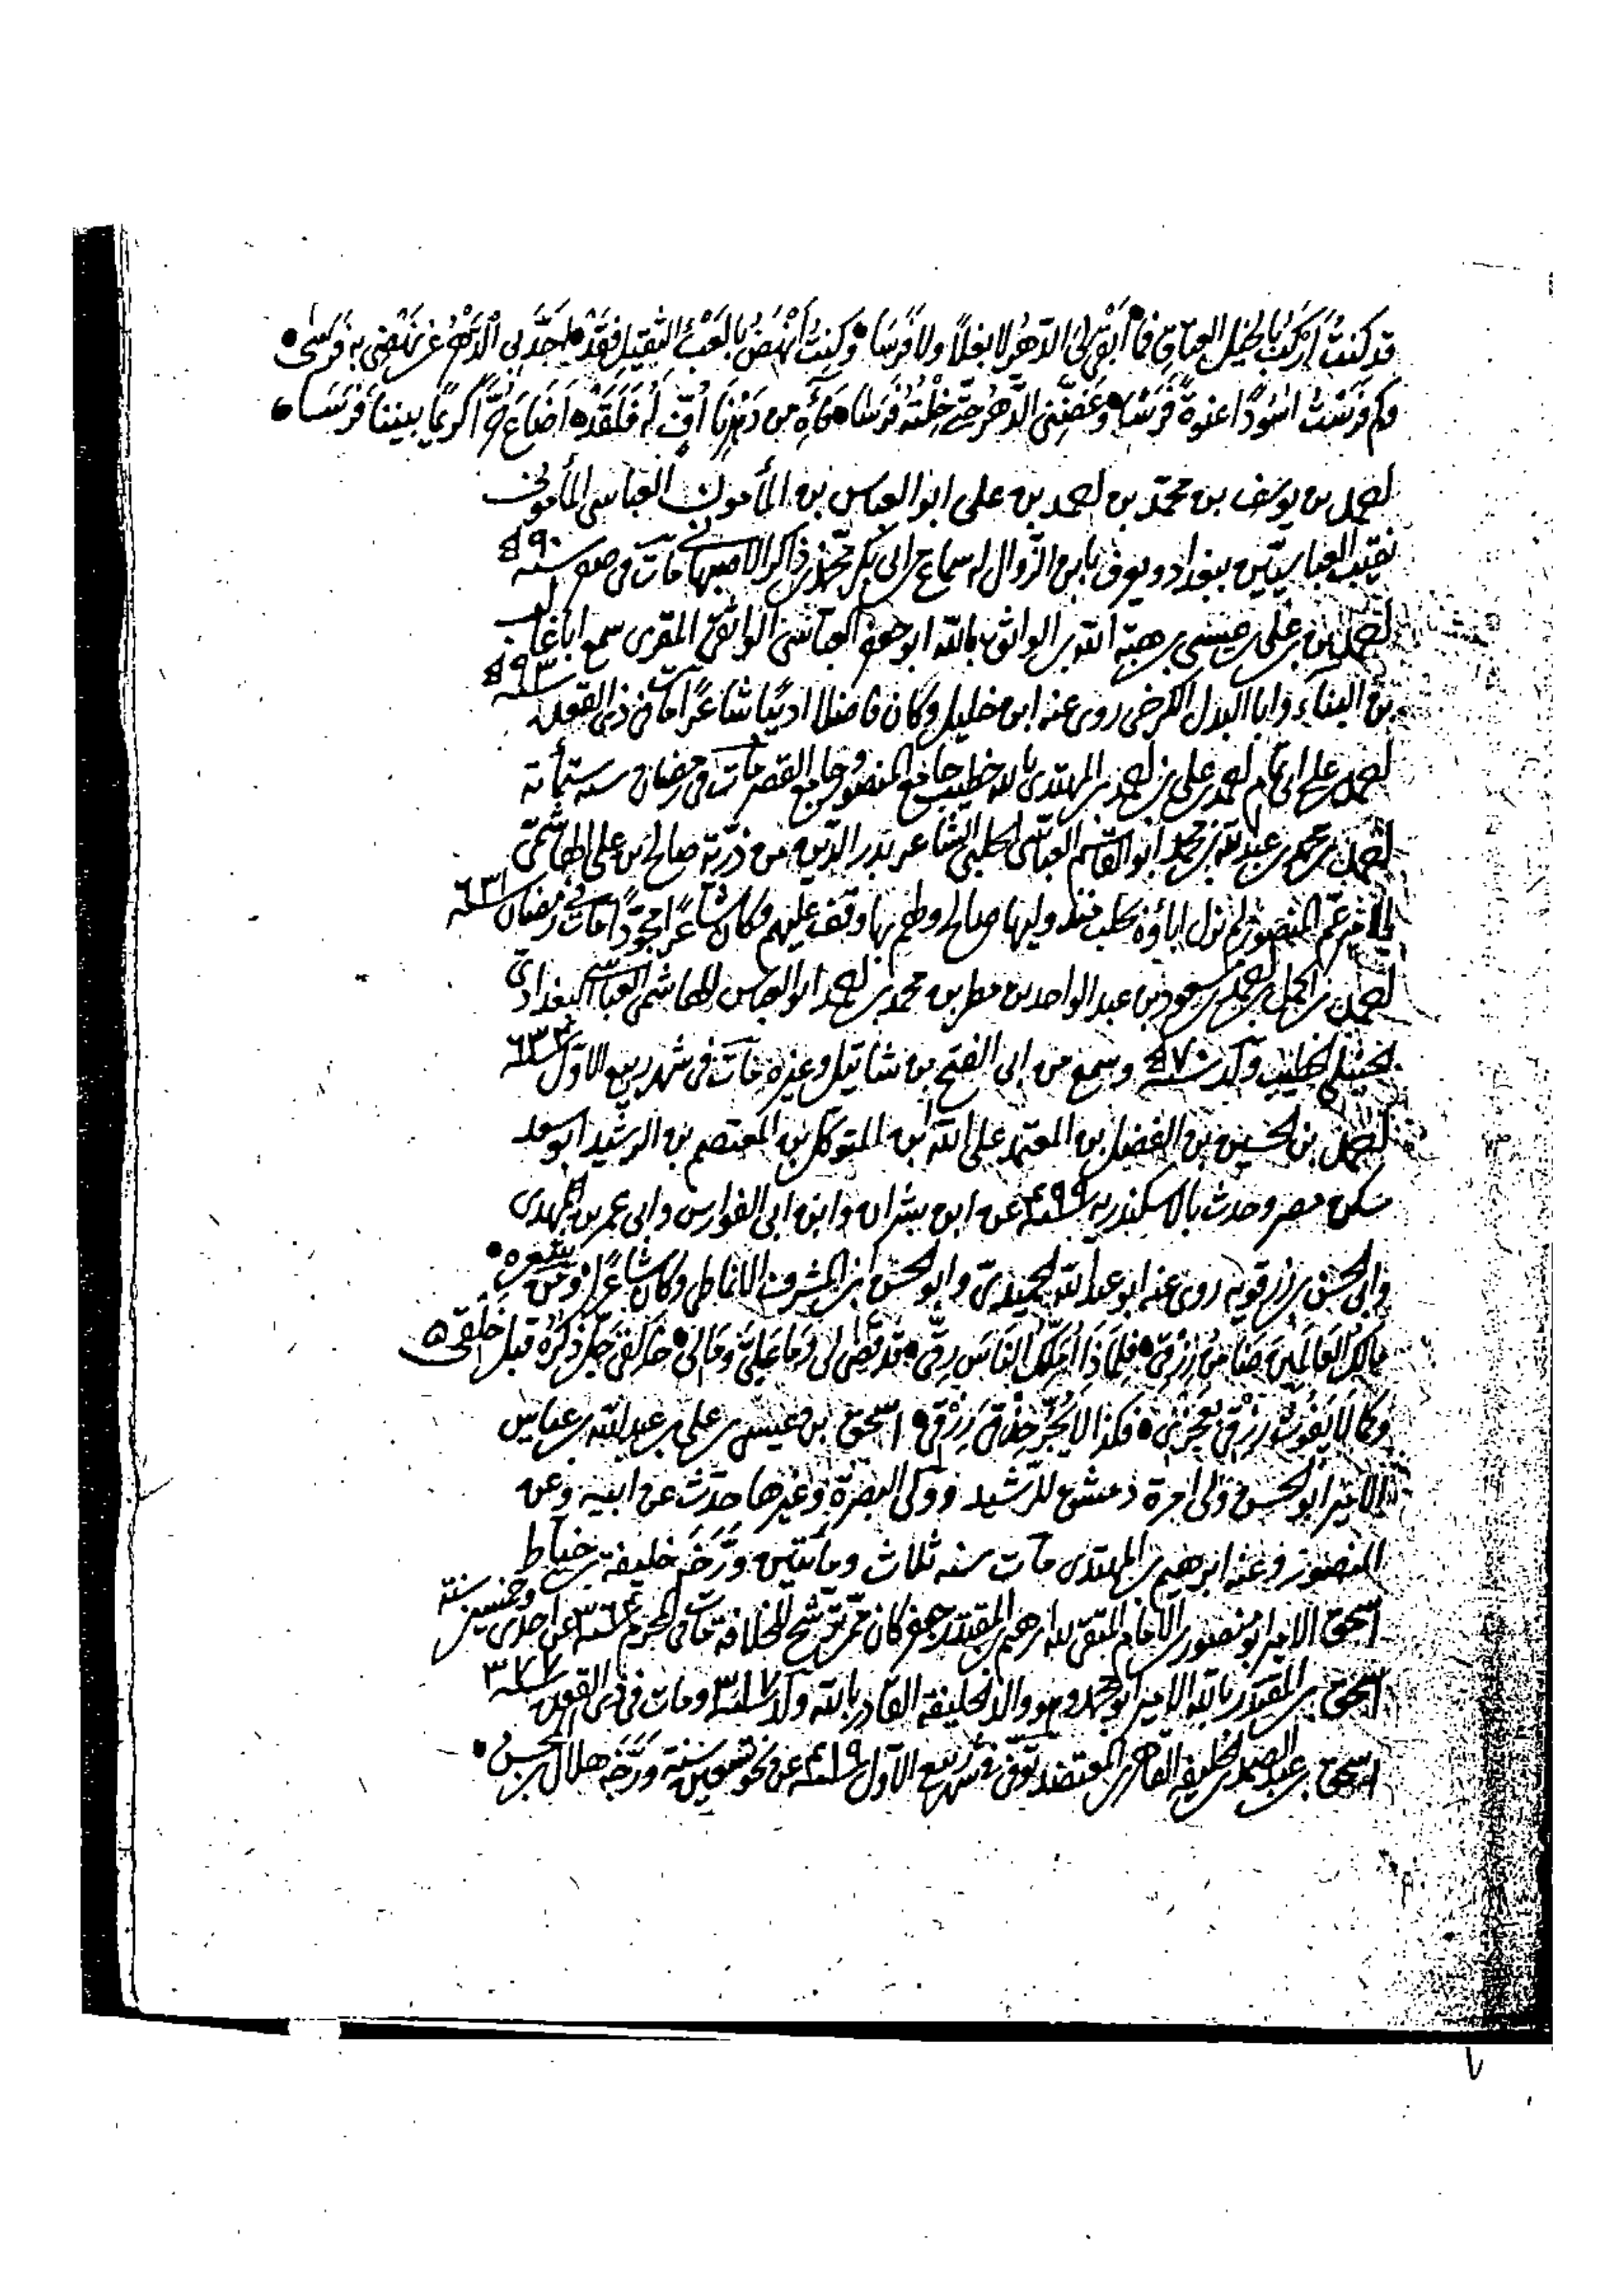 قد كنتُ أركبُ بالخيل العتاق فما • أبقى لي الدهرُ لا بغلاً ولا فَرَسَا • وكنتُ أنهضُ بالعبء الثقيل فقد •
وكم فرست أسودًا عنوةً فرسًا • وعضني الدهر حتى خلته فرسا • من دهرنا أفٍ له فلقد • أضاع حرًّا كريمًا بيننا فرسا •
احمد بن يوسف بن محمد بن احمد بن على ابو العباس بن المأمون العباسى المأمونى
نقيب العباسيّين ببغداد ويعرف بابن الزّوال له سماع من ابى بكر محمد بن ذاكر الاصبهانى مات فى صفر سنه ٥٩٠
احمد بن على بن عيسى بن هبة الله بن الواثق بالله ابو جعفر العباسى الواثقى المقرى سمع ابا غالب
بن البناء وابا البدل الكرخى روى عنه ابن خليل وكان فاضلا اديبًا شاعرًا مات فى ذى القعده سنه ٥٩٣
احمد بن على احمد بن على بن احمد بن المهتدى بالله خطيب جامع المنصور وجامع القصر مات فى رمضان سنه ستمأته
احمد بن محمد بن عبد الله بن محمد ابو القاسم العباسى الحلبى الشاعر بدر الدين من ذرّية صالح بن على الهاشمىّ
الامير عمّ المنصور لم نزل اباؤه بحلب منذ وليها صالح ولهم بها وقف عليهم وكان شاعرًا مجوّدًا مات فى رمضان سنه ٦٣١
احمد بن اكمل بن احمد بن مسعود بن عبد الواحد بن مطر بن محمد بن احمد ابو العباس الهاشمى العباسى البغدادىّ
الحنبلى الخطيب ولد سنه ٥٧٠ وسمع من ابى الفتح بن شاتيل وغيره مات فى شهر ربيع الاوّل
احمد بن الحسين بن الفضل بن المعتمد على الله ابن المتوكل بن المعتصم بن الرشيد ابو سعد
سكن مصر وحدث بالاسكندريه سنه ٤٩٩ عن ابن بشران وابن ابى الفوارس وابى عمر بن المهدى
وابى الحسن بن رزقويه روى عنه ابو عبد الله الحميدىّ وابو الحسن بن المشرف الانماطى وكان شاعرًا ومن شعره •
مالك العالمين ضامن رزقى • فلماذا أملّك الناس رقّى • قد قضى لى وما علىّ ومالى • خالقى جلّ ذكره قبل خلقى ٥
وكما لا يفوت رزقى بعجزى • فكذا لا يجرّ حذقى رزقى • اسحق بن عيسى بن على بن عبد الله بن عباس
الامير ابو الحسن ولى امرة دمشق للرّشيد وولى البصرة وغيرها حدّث عن ابيه وعن
المنصور وعنه ابرهيم بن المهتدى مات سنه ثلاث ومائتين ورّخه خليفة بن خيّاط
اسحق الامير ابو منصور بن الامام المتقى لله ابرهيم بن المقتدر جعفر كان ممن ترشح للخلافة مات فى المحرم سنه ٣٦٤ عن احدى وخمسين سنة
اسحق بن المقتدر بالله الامير ابو محمد وهو والد الخليفة القادر بالله ولد سنه ٣١٧ ومات فى ذى القعده سنه ٣٧٧
اسحق بن عبد الصمد الخليفه القاهر بن المعتضد توفى فى شهر ربيع الاول سنه ٤١٩ عن نحو تسعين سنة ورّخه هلال بن المحسن •
٧